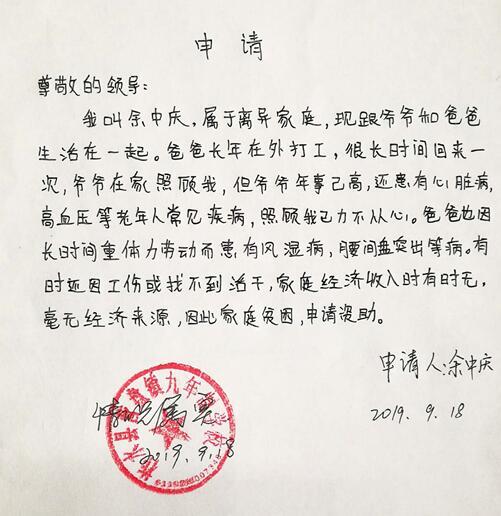 申请
尊敬的领导:
我叫余中庆,属于离异家庭,现跟爷爷和爸爸
生活在一起。爸爸长年在外打工,很长时间回来一
次,爷爷在家照顾我,但爷爷年事已高,还患有心脏病,
高血压等老年人常见疾病,照顾我已力不从心。爸爸也因
长时间重体力劳动而患有风湿病,腰间盘突出等病。有
时还因工伤或找不到活干,家庭经济收入时有时无,
毫无经济来源,因此家庭贫困,申请资助。
申请人:余中庆
2019.9.18
情况属实
2019.9.18
修水县 镇九年 学校